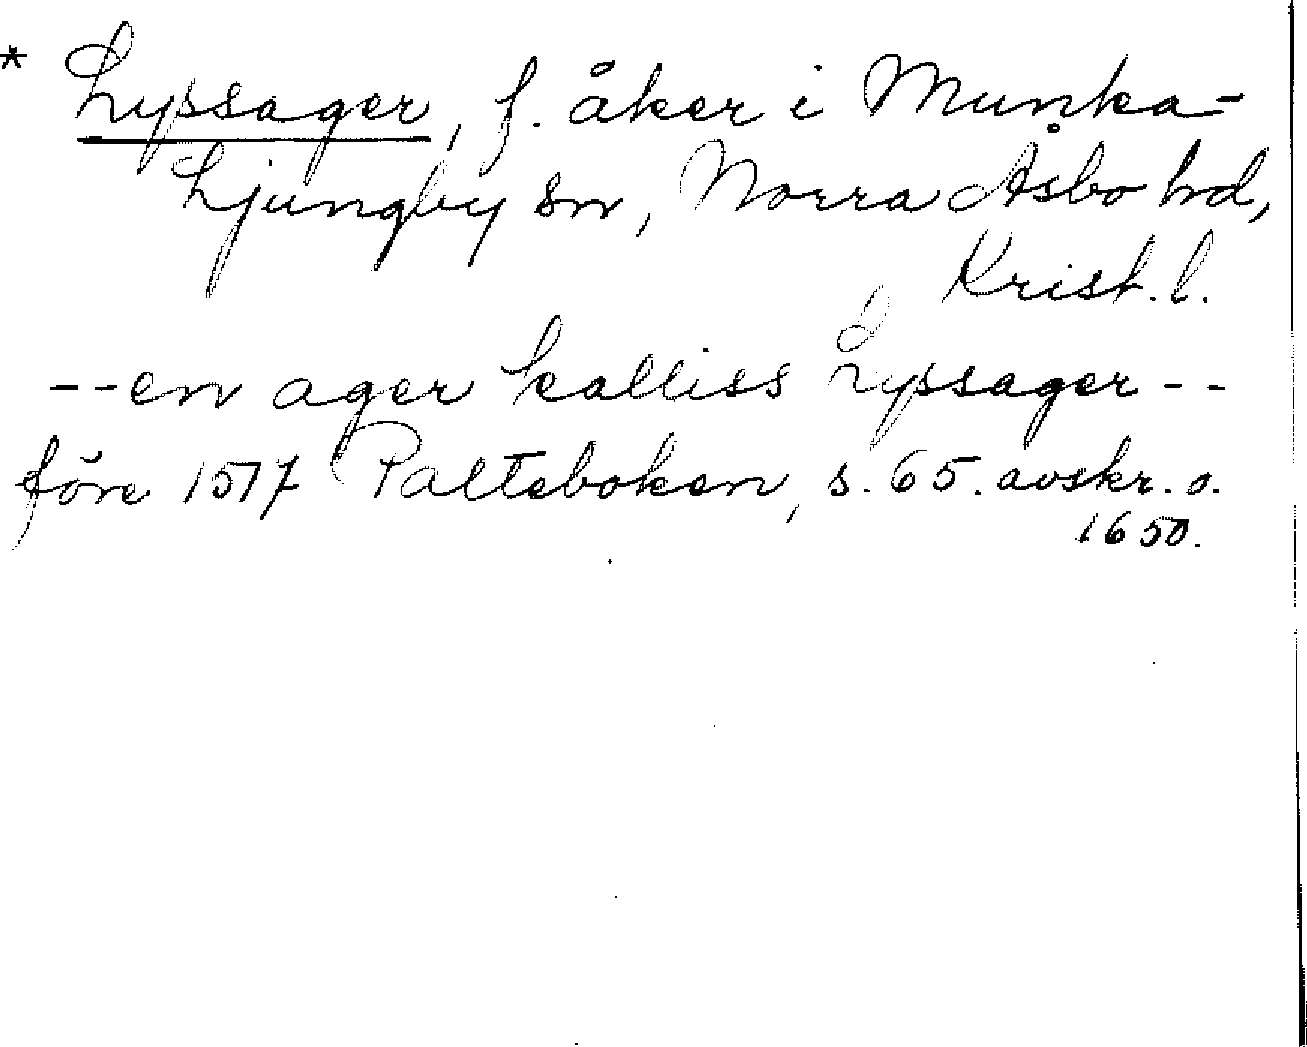 * Lyssager, f. åker i Munka-
Ljungby sn, Norra Åsbo hd,
Krist. l.
--en ager kalliss Lyssager--
före 1517 Palteboken, s. 65. avskr. o.
1650.